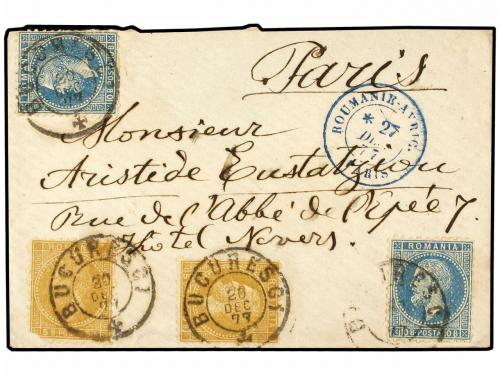 ROMANIA
BUCURESCI
20
DEC
77
Paris
ROUMANIE-AVRIC.
* 27
PARIS
Monsieur
Aristide Eustatziou
Rue de l'Abbé de l'Epée 7.
Hotel Nevers.
BUCURESCI
20
DEC
77
BUCURESCI
20
DEC
77
ROMANIA
POSTA